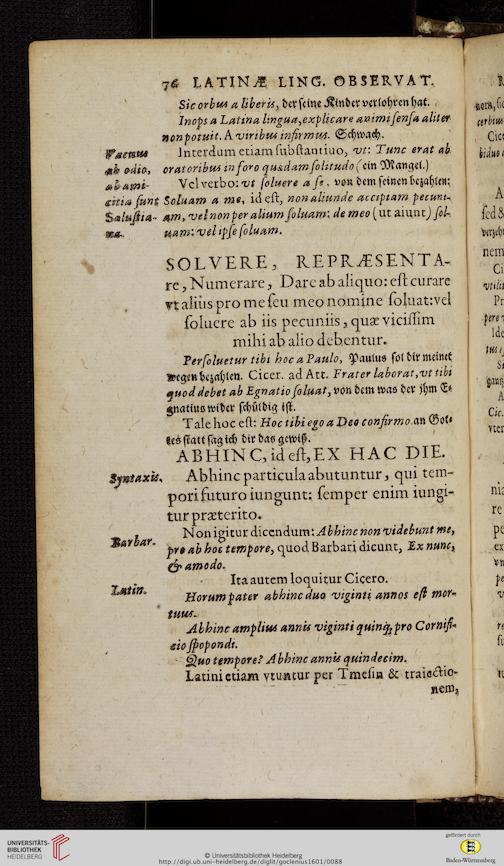 76 LATINÆ LING. OBSERVAT.
Sic orbus a liberis, der seine Kinder verlohren hat.
Inops a Latina lingua, explicare animi sensa aliter
non potuit. A viribus infirmus. Schwach.
Interdum etiam substantiuo, vt: Tunc erat ab
oratoribus in foro quædam solitudo (ein Mangel.)
Vel verbo: vt soluere a se, von dem seinen bezahlen:
Soluam a me, id est, non aliunde accipiam pecuni-
am, vel non per alium soluam: de meo (ut aiunt) sol-
uam: vel ipse soluam.
Vacuus
ab odio,
ab ami-
citia sunt
Salustia-
na.
SOLVERE, REPRÆSENTA-
re, Numerare, Dare ab aliquo: est curare
vt alius pro me seu meo nomine soluat: vel
soluere ab iis pecuniis, quæ vicissim
mihi ab alio debentur.
Persoluetur tibi hoc a Paulo, Paulus sol dir meinet
wegen bezahlen. Cicer. ad Att. Frater laborat, vt tibi
quod debet ab Egnatio soluat, von dem was der jhm E-
gnatius wider schüldig ist.
Tale hoc est: Hoc tibi ego a Deo confirmo. an Got-
tes statt sag ich dir das gewiß.
ABHINC, id est, EX HAC DIE.
Syntaxis.
Abhinc particula abutuntur, qui tem-
pori futuro iungunt: semper enim iungi-
tur præterito.
Non igitur dicendum: Abhinc non videbunt me,
Barbar.
pro ab hoc tempore, quod Barbari dicunt, Ex nunc,
& amodo.
Ita autem loquitur Cicero.
Latin.
Horum pater abhinc duo viginti annos est mor-
tuus.
Abhinc amplius annis viginti quinq;, pro Cornifi-
cio spopondi.
Quo tempore? Abhinc annis quindecim.
Latini etiam vtuntur per Tmesin & traiectio-
nem,
UNIVERSITÄTS-
BIBLIOTHEK
HEIDELBERG
© Universitätsbibliothek Heidelberg
http://digi.ub.uni-heidelberg.de/diglit/goclenius1601/0088
gefördert durch
Baden-Württemberg